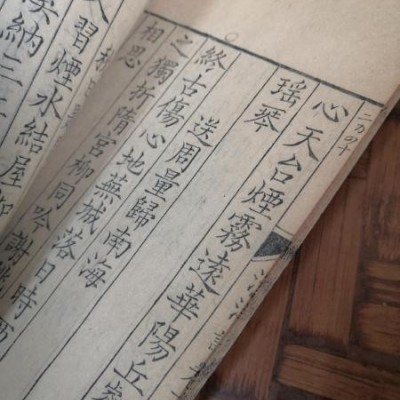 心天台煙霧遠華陽丘
瑤琴
送周量歸南海
終古傷心地蕪城落日時西
之獨折隋宮柳同吟謝
相思
習煙水結屋
納二